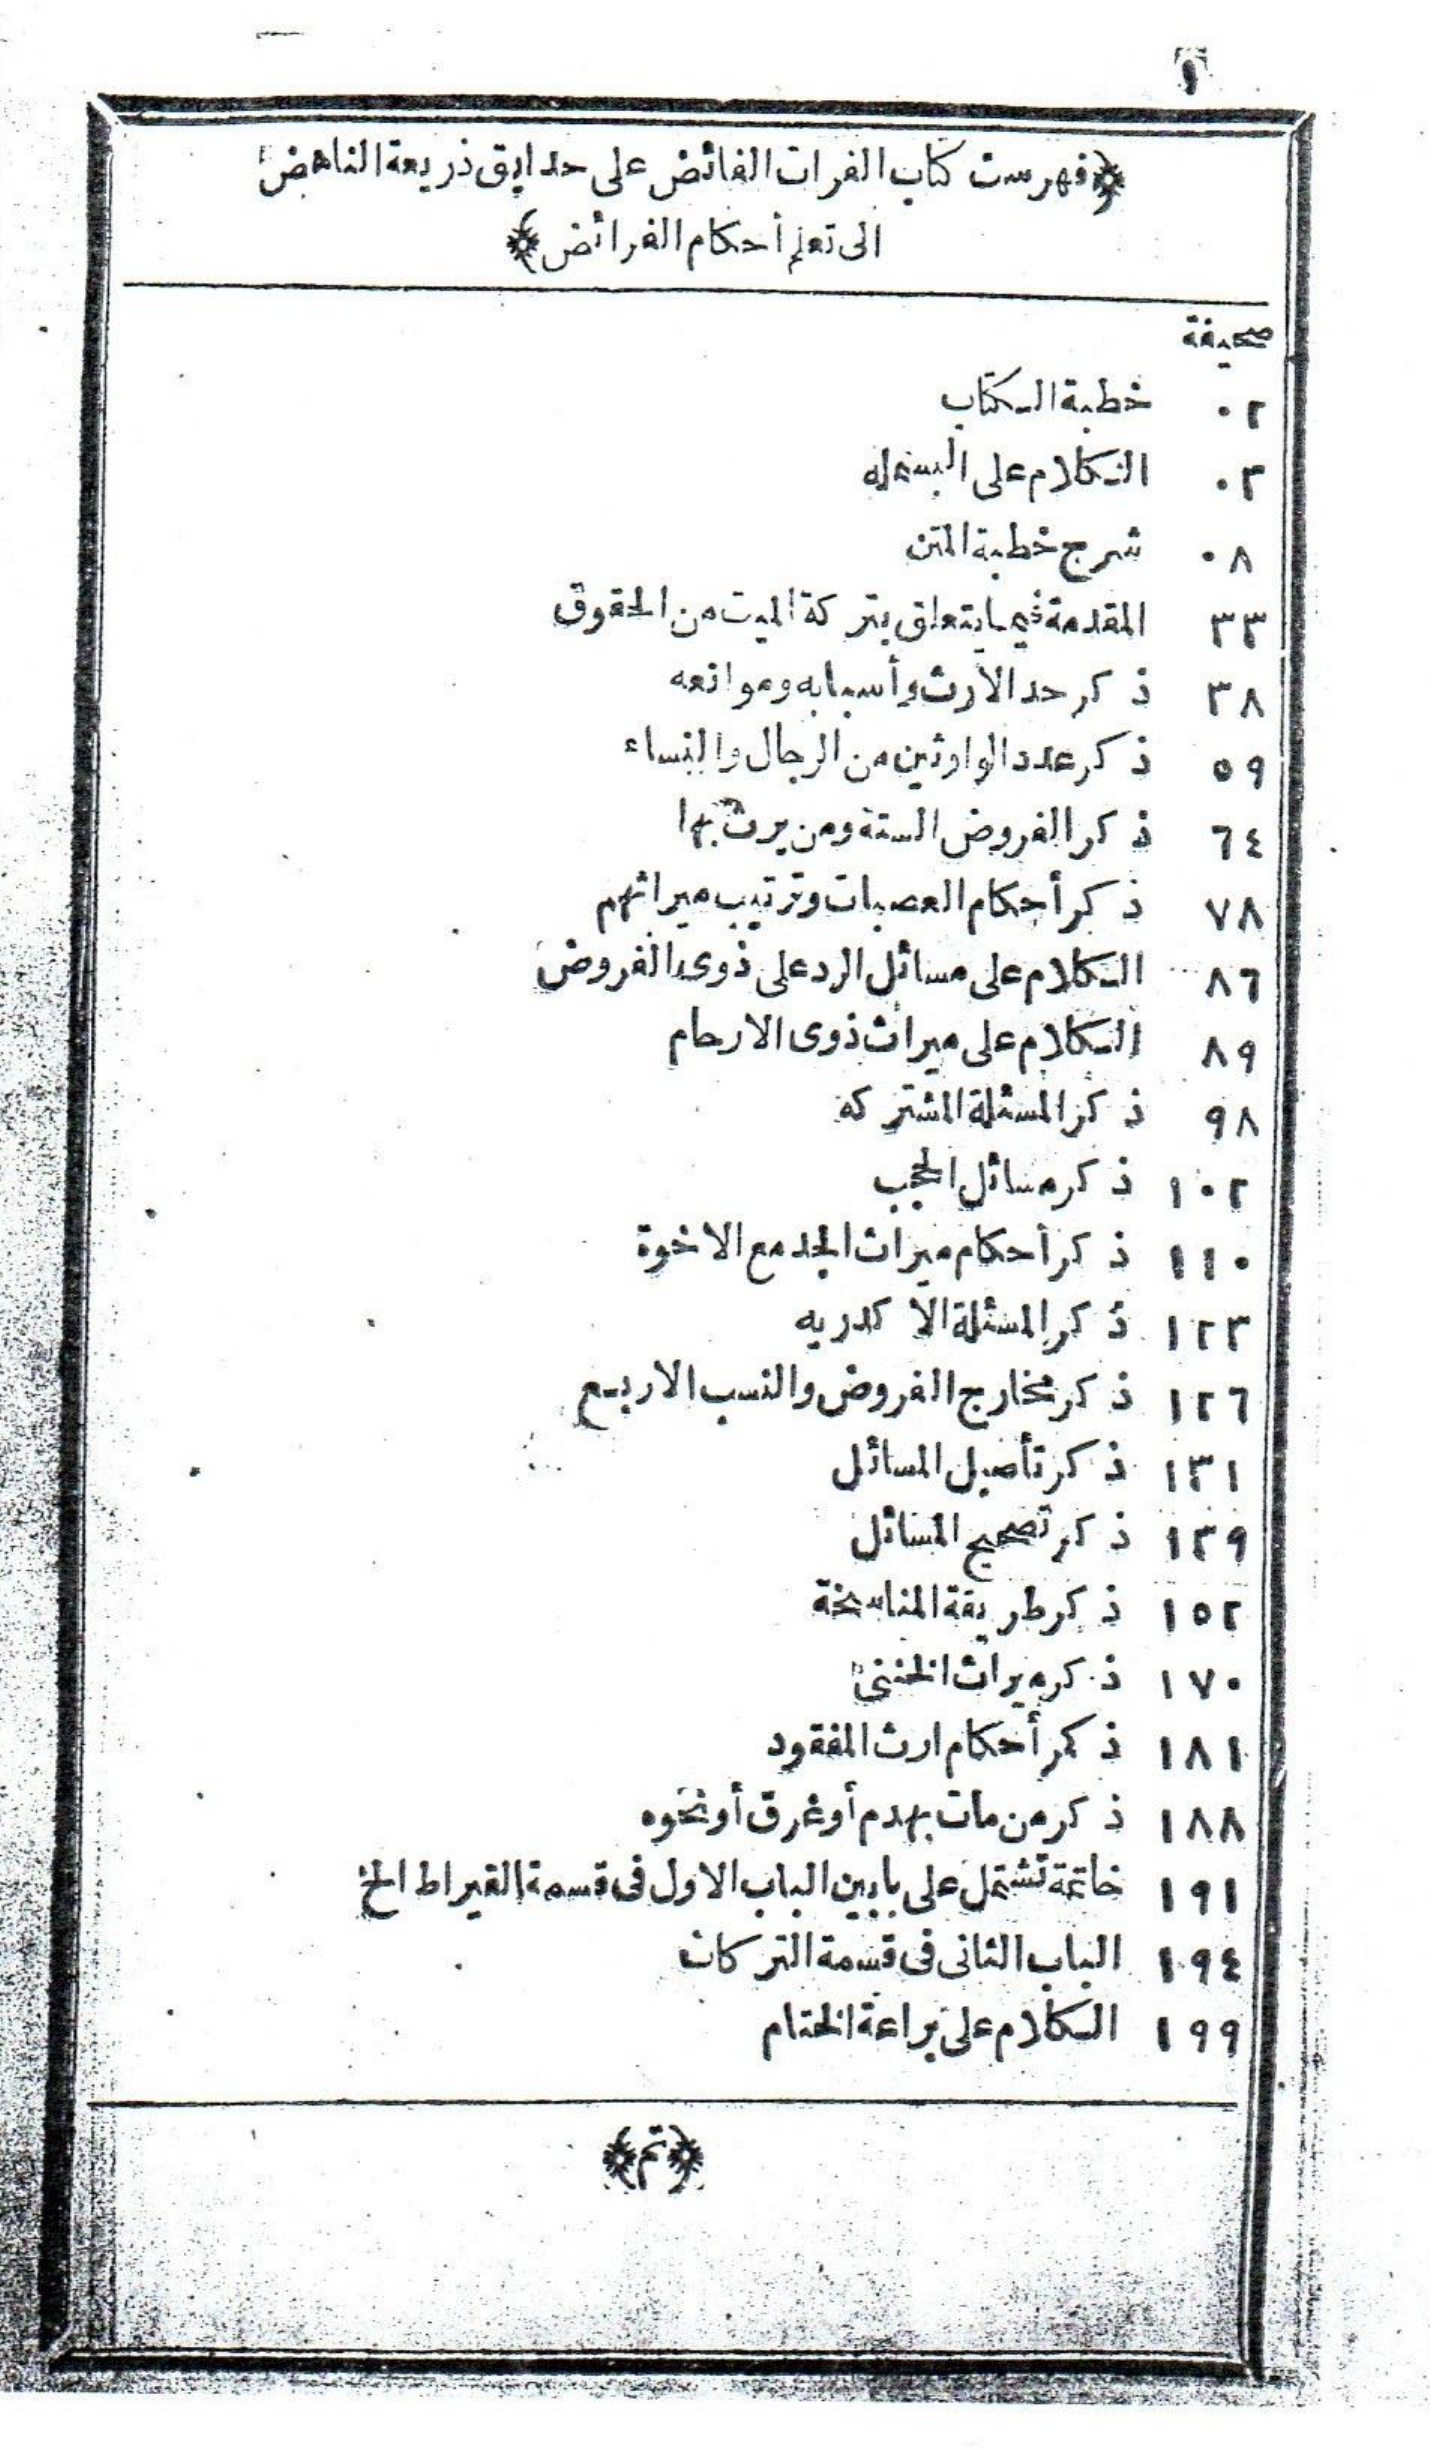 ١
﴿فهرست كتاب الفرات الفائض على حدايق ذريعة الناهض
الى تعلم أحكام الفرائض﴾
صحيفة
٠٢ خطبة الكتاب
٠٣ الكلام على البسمله
٠٨ شرح خطبة المتن
٣٣ المقدمة فيما يتعلق بتركة الميت من الحقوق
٣٨ ذكر حد الارث وأسبابه وموانعه
٥٩ ذكر عدد الوارثين من الرجال والنساء
٦٤ ذكر الفروض الستة ومن يرث بها
٧٨ ذكر أحكام العصبات وترتيب ميراثهم
٨٦ الكلام على مسائل الرد على ذوى الفروض
٨٩ الكلام على ميراث ذوى الارحام
٩٨ ذكر المسئلة المشتركه
١٠٢ ذكر مسائل الحجب
١١٠ ذكر أحكام ميراث الجد مع الاخوة
١٢٣ ذكر المسئلة الاكدريه
١٢٦ ذكر مخارج الفروض والنسب الاربع
١٣١ ذكر تأصيل المسائل
١٣٩ ذكر تصحيح المسائل
١٥٢ ذكر طريقة المناسخة
١٧٠ ذكر ميراث الخنثى
١٨١ ذكر أحكام ارث المفقود
١٨٨ ذكر من مات بهدم أو غرق أو نحوه
١٩١ خاتمة تشتمل على بابين الباب الاول فى قسمة القيراط الخ
١٩٤ الباب الثانى فى قسمة التركات
١٩٩ الكلام على براعة الختام
﴿تم﴾